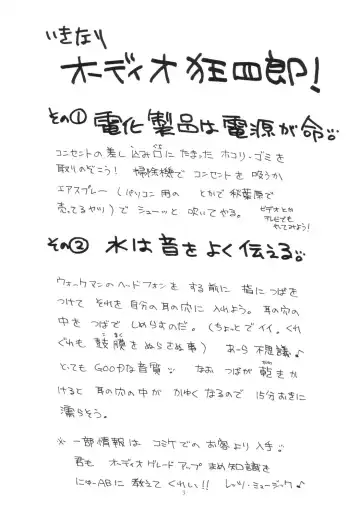 いきなり
オーディオ狂四郎！
その① 電化製品は電源が命。
コンセントの差し込み口にたまったホコリ・ゴミを
取りのぞこう！ 掃除機でコンセントを吸うか
エアスプレー（パソコン用の とかで秋葉原で
売ってるヤツ）でシューッと吹いてやる。
ビデオとか
テレビでも
やってみよう！
その② 水は音をよく伝える。
ウォークマンのヘッドフォンをする前に指につばを
つけてそれを自分の耳の穴に入れよう。耳の穴の
中をつばでしめらすのだ。（ちょっとでイイ。くれ
ぐれも鼓膜をぬらさぬ事）あーら不思議♪
とてもGOODな音質 なおつばが乾きか
けると耳の穴の中がかゆくなるので15分おきに
濡らそう。
※一部情報はコミケでのお客より入手。
君もオーディオグレードアップまめ知識を
にゅーABに教えてくれい!! レッツ・ミュージック♪